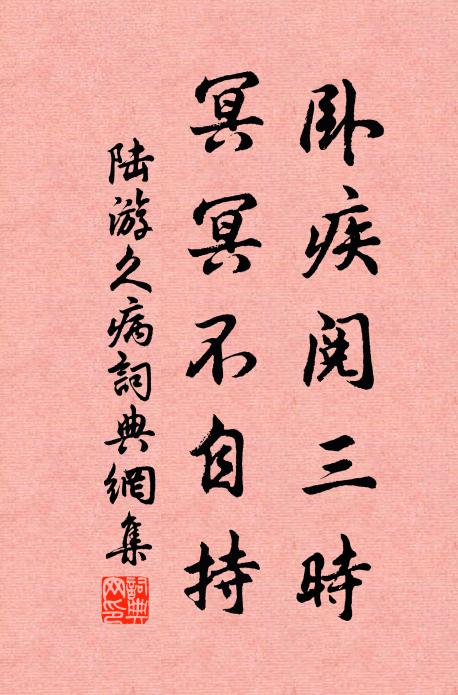 卧疾阅三時
冥冥不自持
陆游久病詞典網集
詞典网印